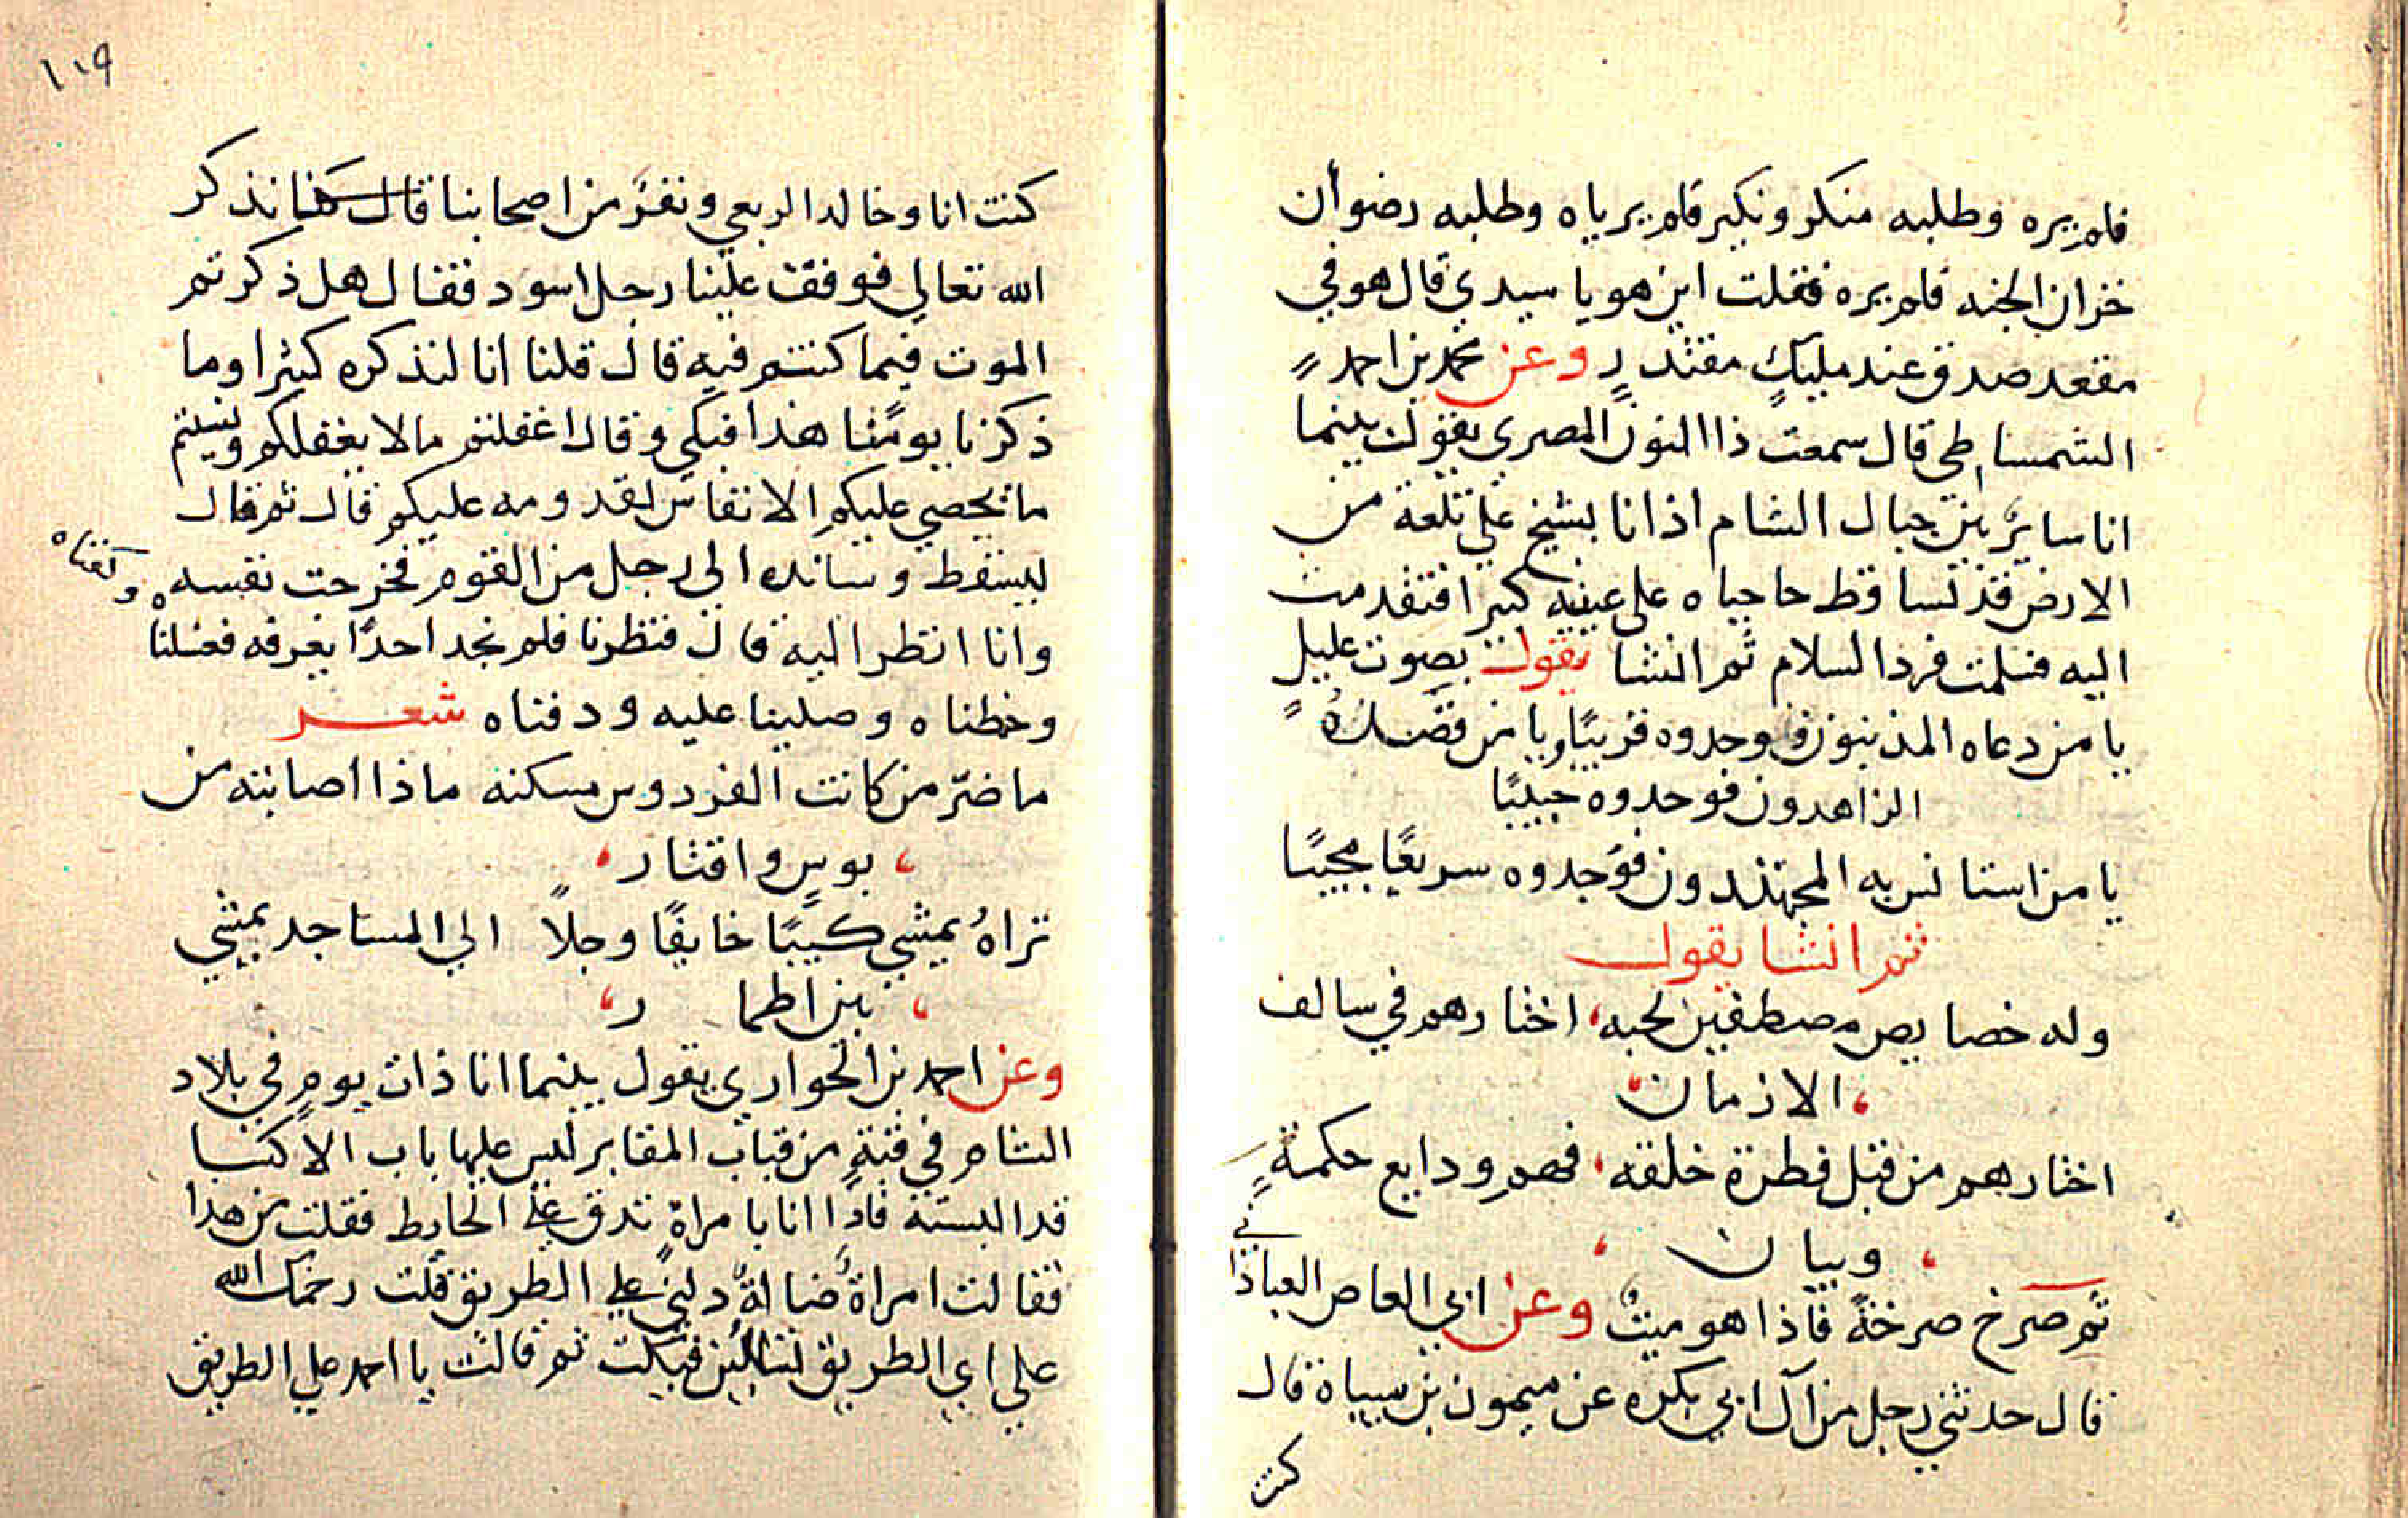 فلم يره وطلبه منكر ونكير فلم يرياه وطلبه رضوان
خزان الجنه فلم يره فقلت اين هو يا سيدي قال هو في
مقعد صدق عند مليكٍ مقتدرٍ وعن محمد بن احمد
الشمساطي قال سمعت ذا النون المصري يقول بينما
انا ساير بين جبال الشام اذ انا بشيخ علي تلعة من
الارض قد تساقط حاجباه على عينيه كبرا فتقدمت
اليه فسلمت فرد السلام ثم انشا يقول بصوت عليلٍ
يا من دعاه المذنبون فوجدوه قريبًا ويا من قصده
الزاهدون فوجدوه حبيبًا
يا من استانس به المجتهدون فوجدوه سريعًا مجيبًا
ثم انشا يقول
وله خصايص مصطفين لحبه، اختارهم في سالف
، الازمان،
اختارهم من قبل فطرة خلقه، فهم ودايع حكمةٍ
، وبيان ،
ثم صرخ صرخةً فاذا هو ميتٌ وعن ابي العاص العباداني
قال حدثني رجل من آل ابي بكره عن ميمون بن سياة قال
كنت
١٠٩
كنت انا وخالد الربعي ونفرٌ من اصحابنا قال كنا نذكر
الله تعالي فوقف علينا رجل اسود فقال هل ذكرتم
الموت فيما كنتم فيه قال قلنا انا لنذكره كثيرا وما
ذكرنا يومنا هذا فبكي وقال اغفلتم ما لا يغفلكم ونسيتم
ما يحصي عليكم الانفاس لقدومه عليكم قال ثم قال
ليسقط وسانده الي رجل من القوم فخرجت نفسه
وانا انظر اليه قال فنظرنا فلم نجد احدًا يعرفه فغسلنا
وكفناه
وحطناه وصلينا عليه ودفناه شعر
ما ضرّ من كانت الفردوس مسكنه ماذا اصابته من
، بوسٍ واقتار،
تراهُ يمشي كييبًا خايفًا وجلاً الي المساجد يمشي
، بين اطمار،
وعن احمد بن الحواري يقول بينما انا ذات يومٍ في بلاد
الشام في قبةٍ من قباب المقابر ليس عليها باب الا كسا
قد البسته فاذا انا بامراةٍ تدق علي الحايط فقلت من هذا
فقالت امراةٌ ضالةٌ دلني علي الطريق قلت رحمك الله
علي اي الطريق تسالين فبكت ثم قالت يا احمد علي الطريق